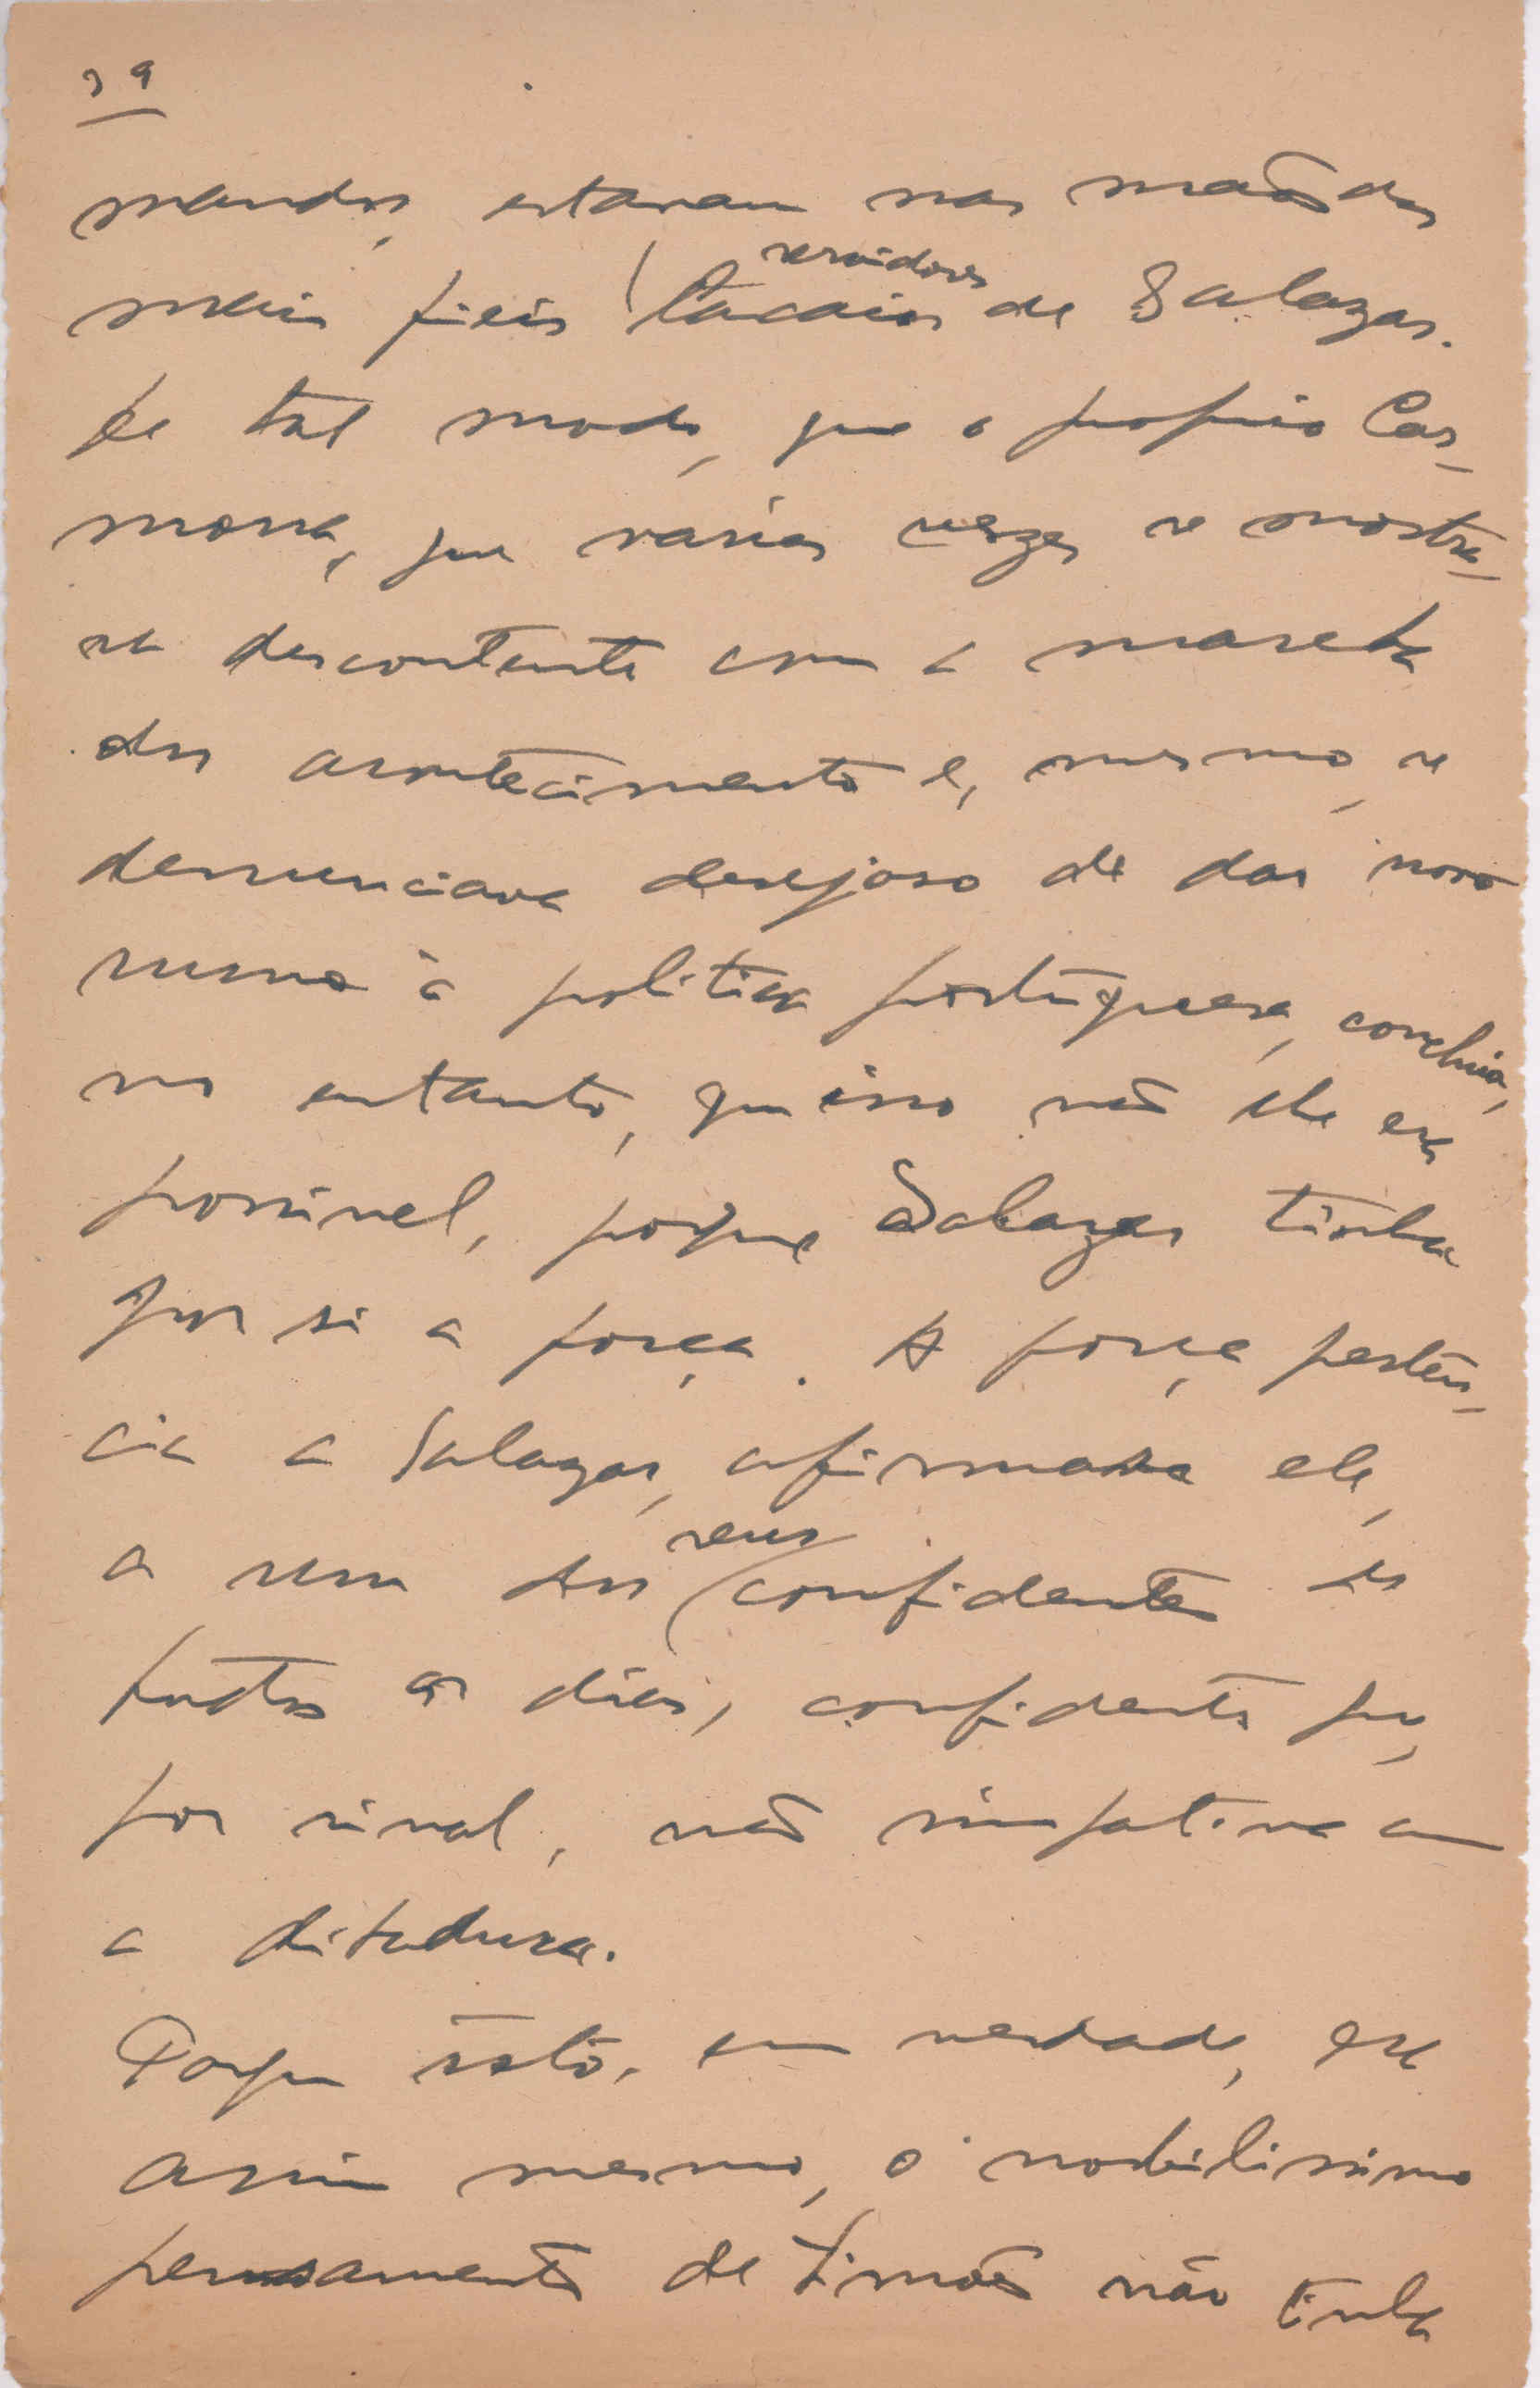 39
mandos, estavam nas mãos dos
servidores
mais fieis lacaios de Salazar.
De tal modo, que o proprio Car-
mona, que varias vezes se mostra-
va descontente com a marcha
dos acontecimentos e, mesmo, se
denunciava desejoso de dar novo
rumo à politica portuguesa, concluia,
no entanto, que isso não lhe era
possivel, porque Salazar tinha
por si a força. A força perten-
cia a Salazar, afirmava ele,
seus
a um dos confidentes de
todos os dias, confidente que,
por sinal, não simpatizava com
a ditadura.
Porque isto, em verdade, era
assim mesmo, o nobilissimo
pensamento de Limões não tinha